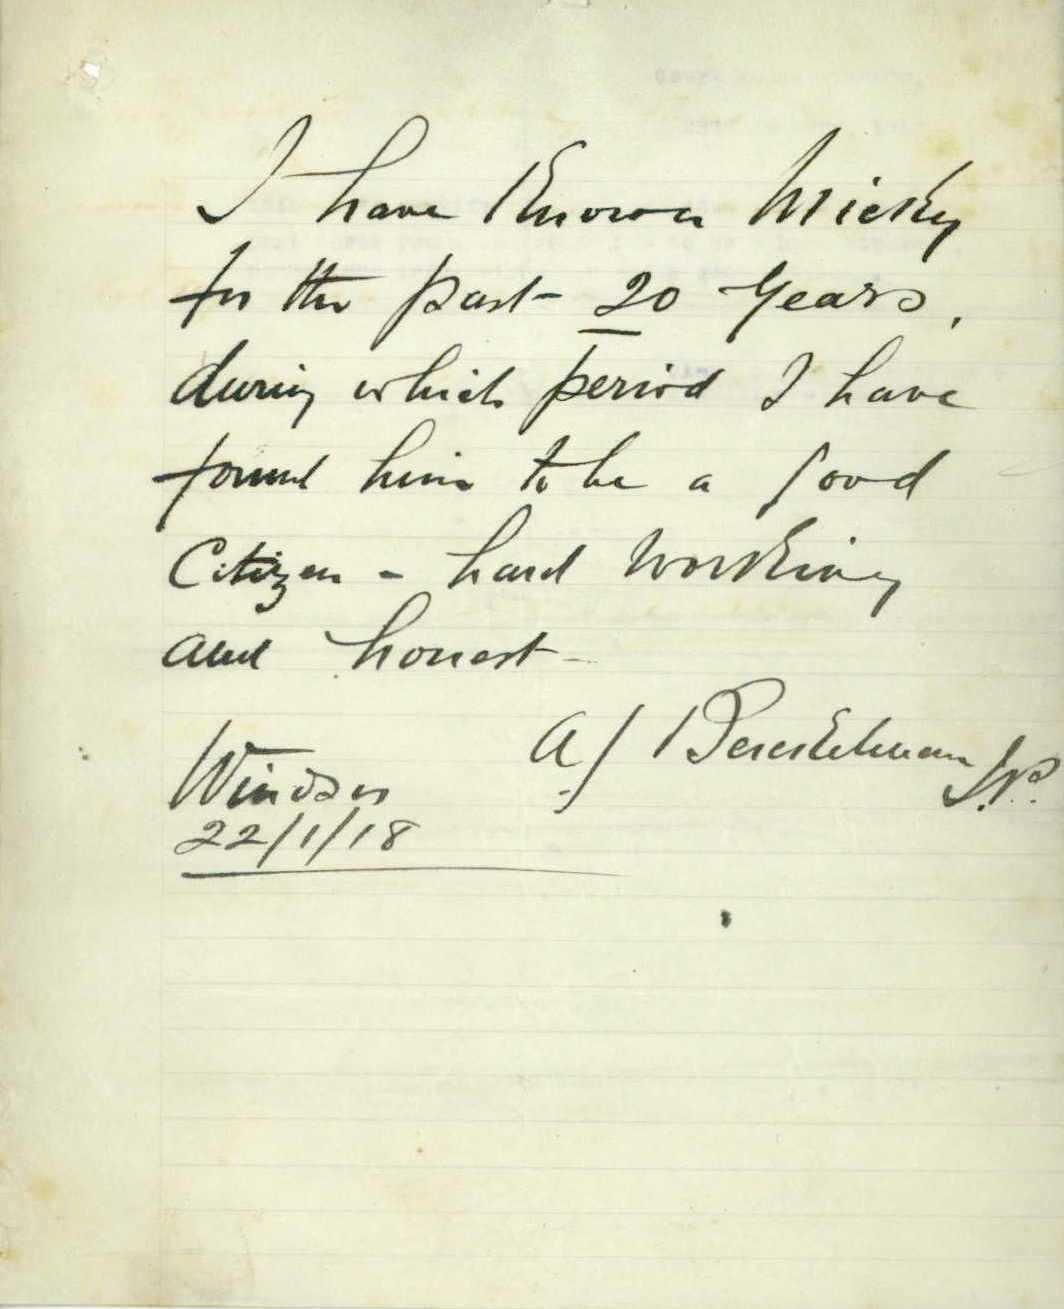 I have Known Micky
for the past 20 Years,
during which period I have
found him to be a good
Citizen - hard working
and honest -
AJ Berckelman J.P.
Windsor
22/1/18